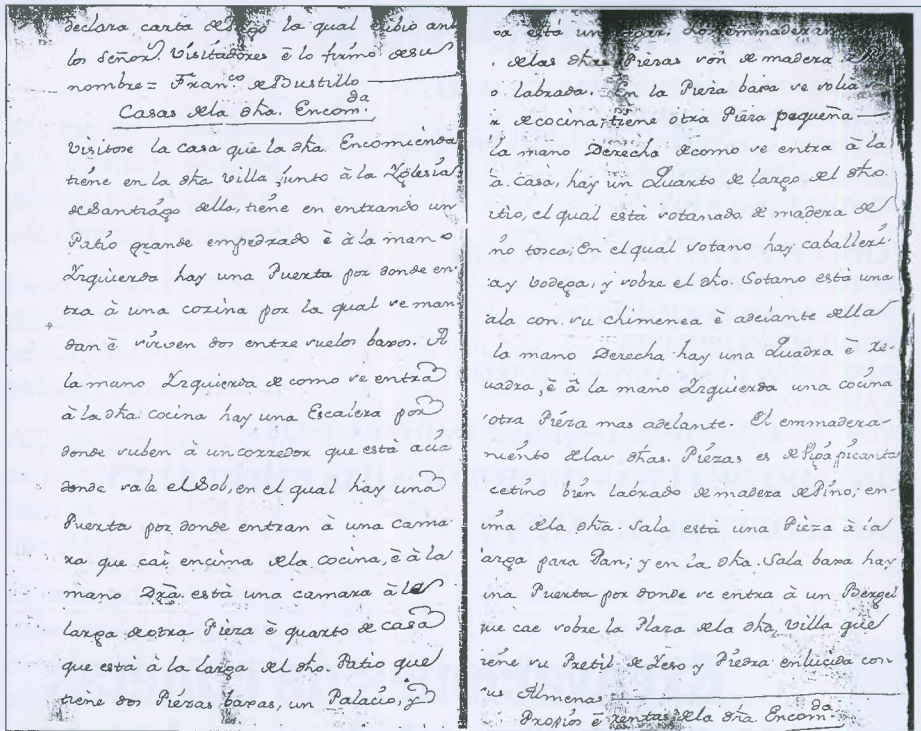 declara carta de pago la qual
los Señor.s Visitadores è lo firmó de su
nombre = Fran.co de Bustillo
Casas de la dha. Encom.da
Visitose la casa que la dha Encomienda
tiene en la dha villa junto à la Yglesia
de Santiago della, tiene en entrando un
Patio grande empedrado è à la mano
Yzquierda hay una Puerta por donde en
tra à una cozina por la qual se man
dan è sirven dos entre suelos baxos. A
la mano Yzquierda de como se entra
à la dha cocina hay una Escalera por
donde suben à un corredor que està acia
donde sale el Sol, en el qual hay una
Puerta por donde entran à una cama
ra que cai encima de la cocina, è à la
mano Dra. està una camara à la
larga de otra Pieza è quarto de casa
que està à la larga del dho. Patio que
tiene dos Piezas baxas, un Palacio, y
està un
. de las dhas Piezas son de madera
o labrada. En la Pieza baxa se solia
r de cocina; tiene otra Pieza pequeña
la mano Derecha de como se entra à la
à. casa, hay un Quarto de largo del dho.
itio, el qual està sotanado de madera de
ino tosca; En el qual sotano hay caballeri
a y bodega, y sobre el dho. Sotano està una
ala con su chimenea è adelante della
la mano Derecha hay una Quadra è re
uadra, è à la mano Yzquierda una cocina
otra Pieza mas adelante. El emmadera-
miento de las dhas. Piezas es de
cetino bien labrado de madera de Pino; en-
ima de la dha. Sala està una Pieza à la
arga para Pan; y en la dha. Sala baxa hay
una Puerta por donde se entra à un Bergel
ue cae sobre la Plaza de la dha. villa que
iene su Pretil de Yeso y Piedra enlucida con
sus Almenas
Propios è rentas de la dha Encom.da